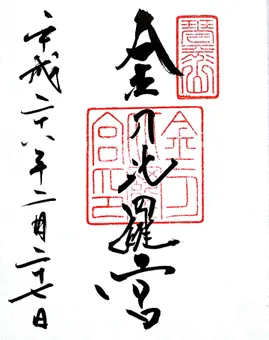 金刀比羅宮
金刀
比羅
宮印
平成二十八年二月二十七日